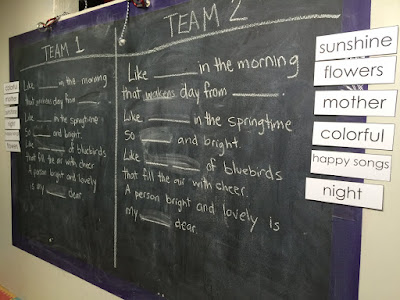 TEAM 1
Like ____ in the morning
that wakens day from ____.
Like ____ in the springtime
So ____ and bright.
Like ____ of bluebirds
that fill the air with cheer.
A person bright and lovely
is my ____ dear.
TEAM 2
Like ____ in the morning
that wakens day from ____.
Like ____ in the springtime
So ____ and bright.
Like ____ of bluebirds
that fill the air with cheer.
A person bright and lovely is
my ____ dear.
colorful
mother
night
flowers
sunshine
flowers
mother
colorful
happy songs
night